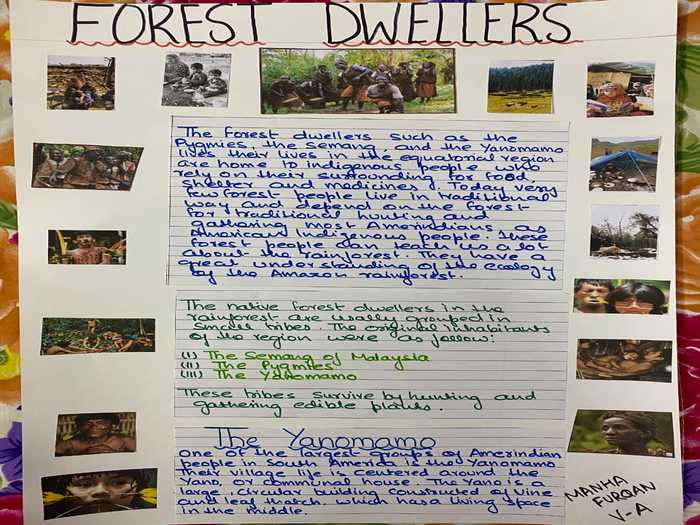 FOREST DWELLERS
The forest dwellers such as the
Pygmies, the semang, and the Yanomamo
lives their lives in the equatorial region
are home to indigenous people who
rely on their surrounding for food,
shelter and medicines. Today very
few forest people live in traditional
way and depend on the forest
for traditional hunting and
gathering most Amerindians as
American Indigenous people these
forest people can teach us a lot
about the rainforest. They have a
great understanding of the ecology
by the Amazon rainforest.
The native forest dwellers in the
rainforest are usally grouped in
small tribes. The original inhabitants
of the region were as follow:
(i) The Semang of Malaysia
(ii) The Pygmies
(iii) The Yanomamo
These tribes survive by hunting and
gathering edible plants.
The Yanomamo
One of the largest groups of Amerindian
people in South America is the Yanomamo
Their village life is centered around the
Yano, or communal house. The Yano is a
large, circular building constructed of vine
and leaf thatch, which has a living space
in the middle.
MANHA
FURQAN
V-A